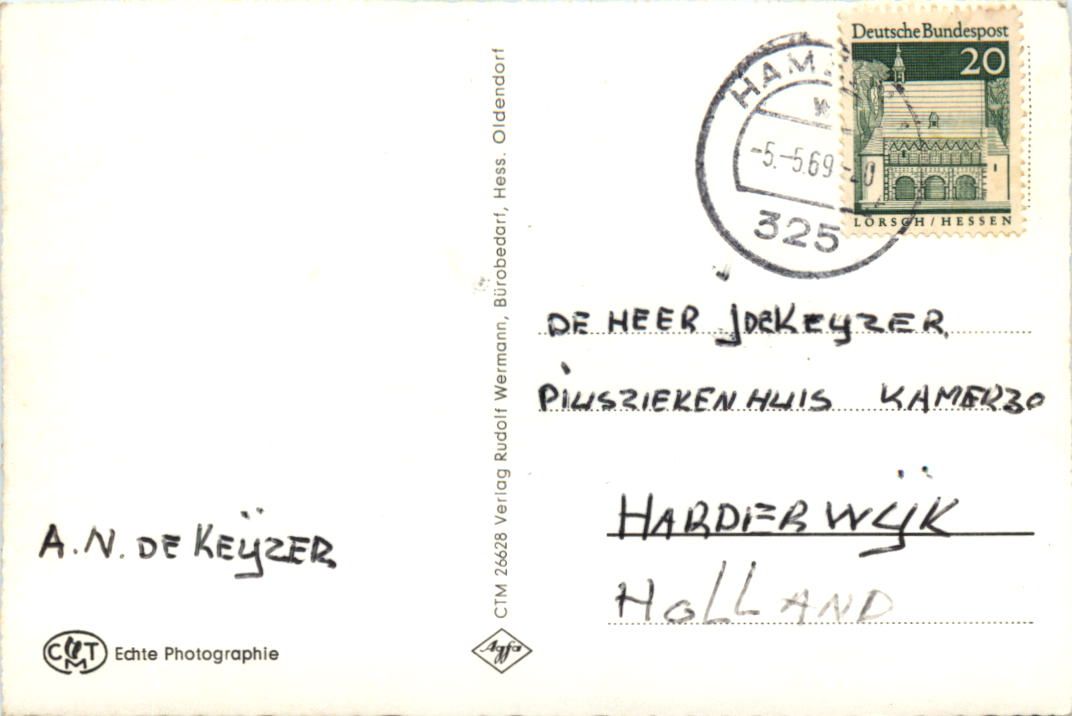 Deutsche Bundespost
20
LORSCH / HESSEN
-5.-5.69
325
DE HEER J DE KEYZER,
PIUSZIEKENHUIS KAMER 30
HARDERWIJK
HOLLAND
A.N. DE KEIJZER
CTM Echte Photographie
CTM 26628 Verlag Rudolf Wermann, Bürobedarf, Hess. Oldendorf
Agfa